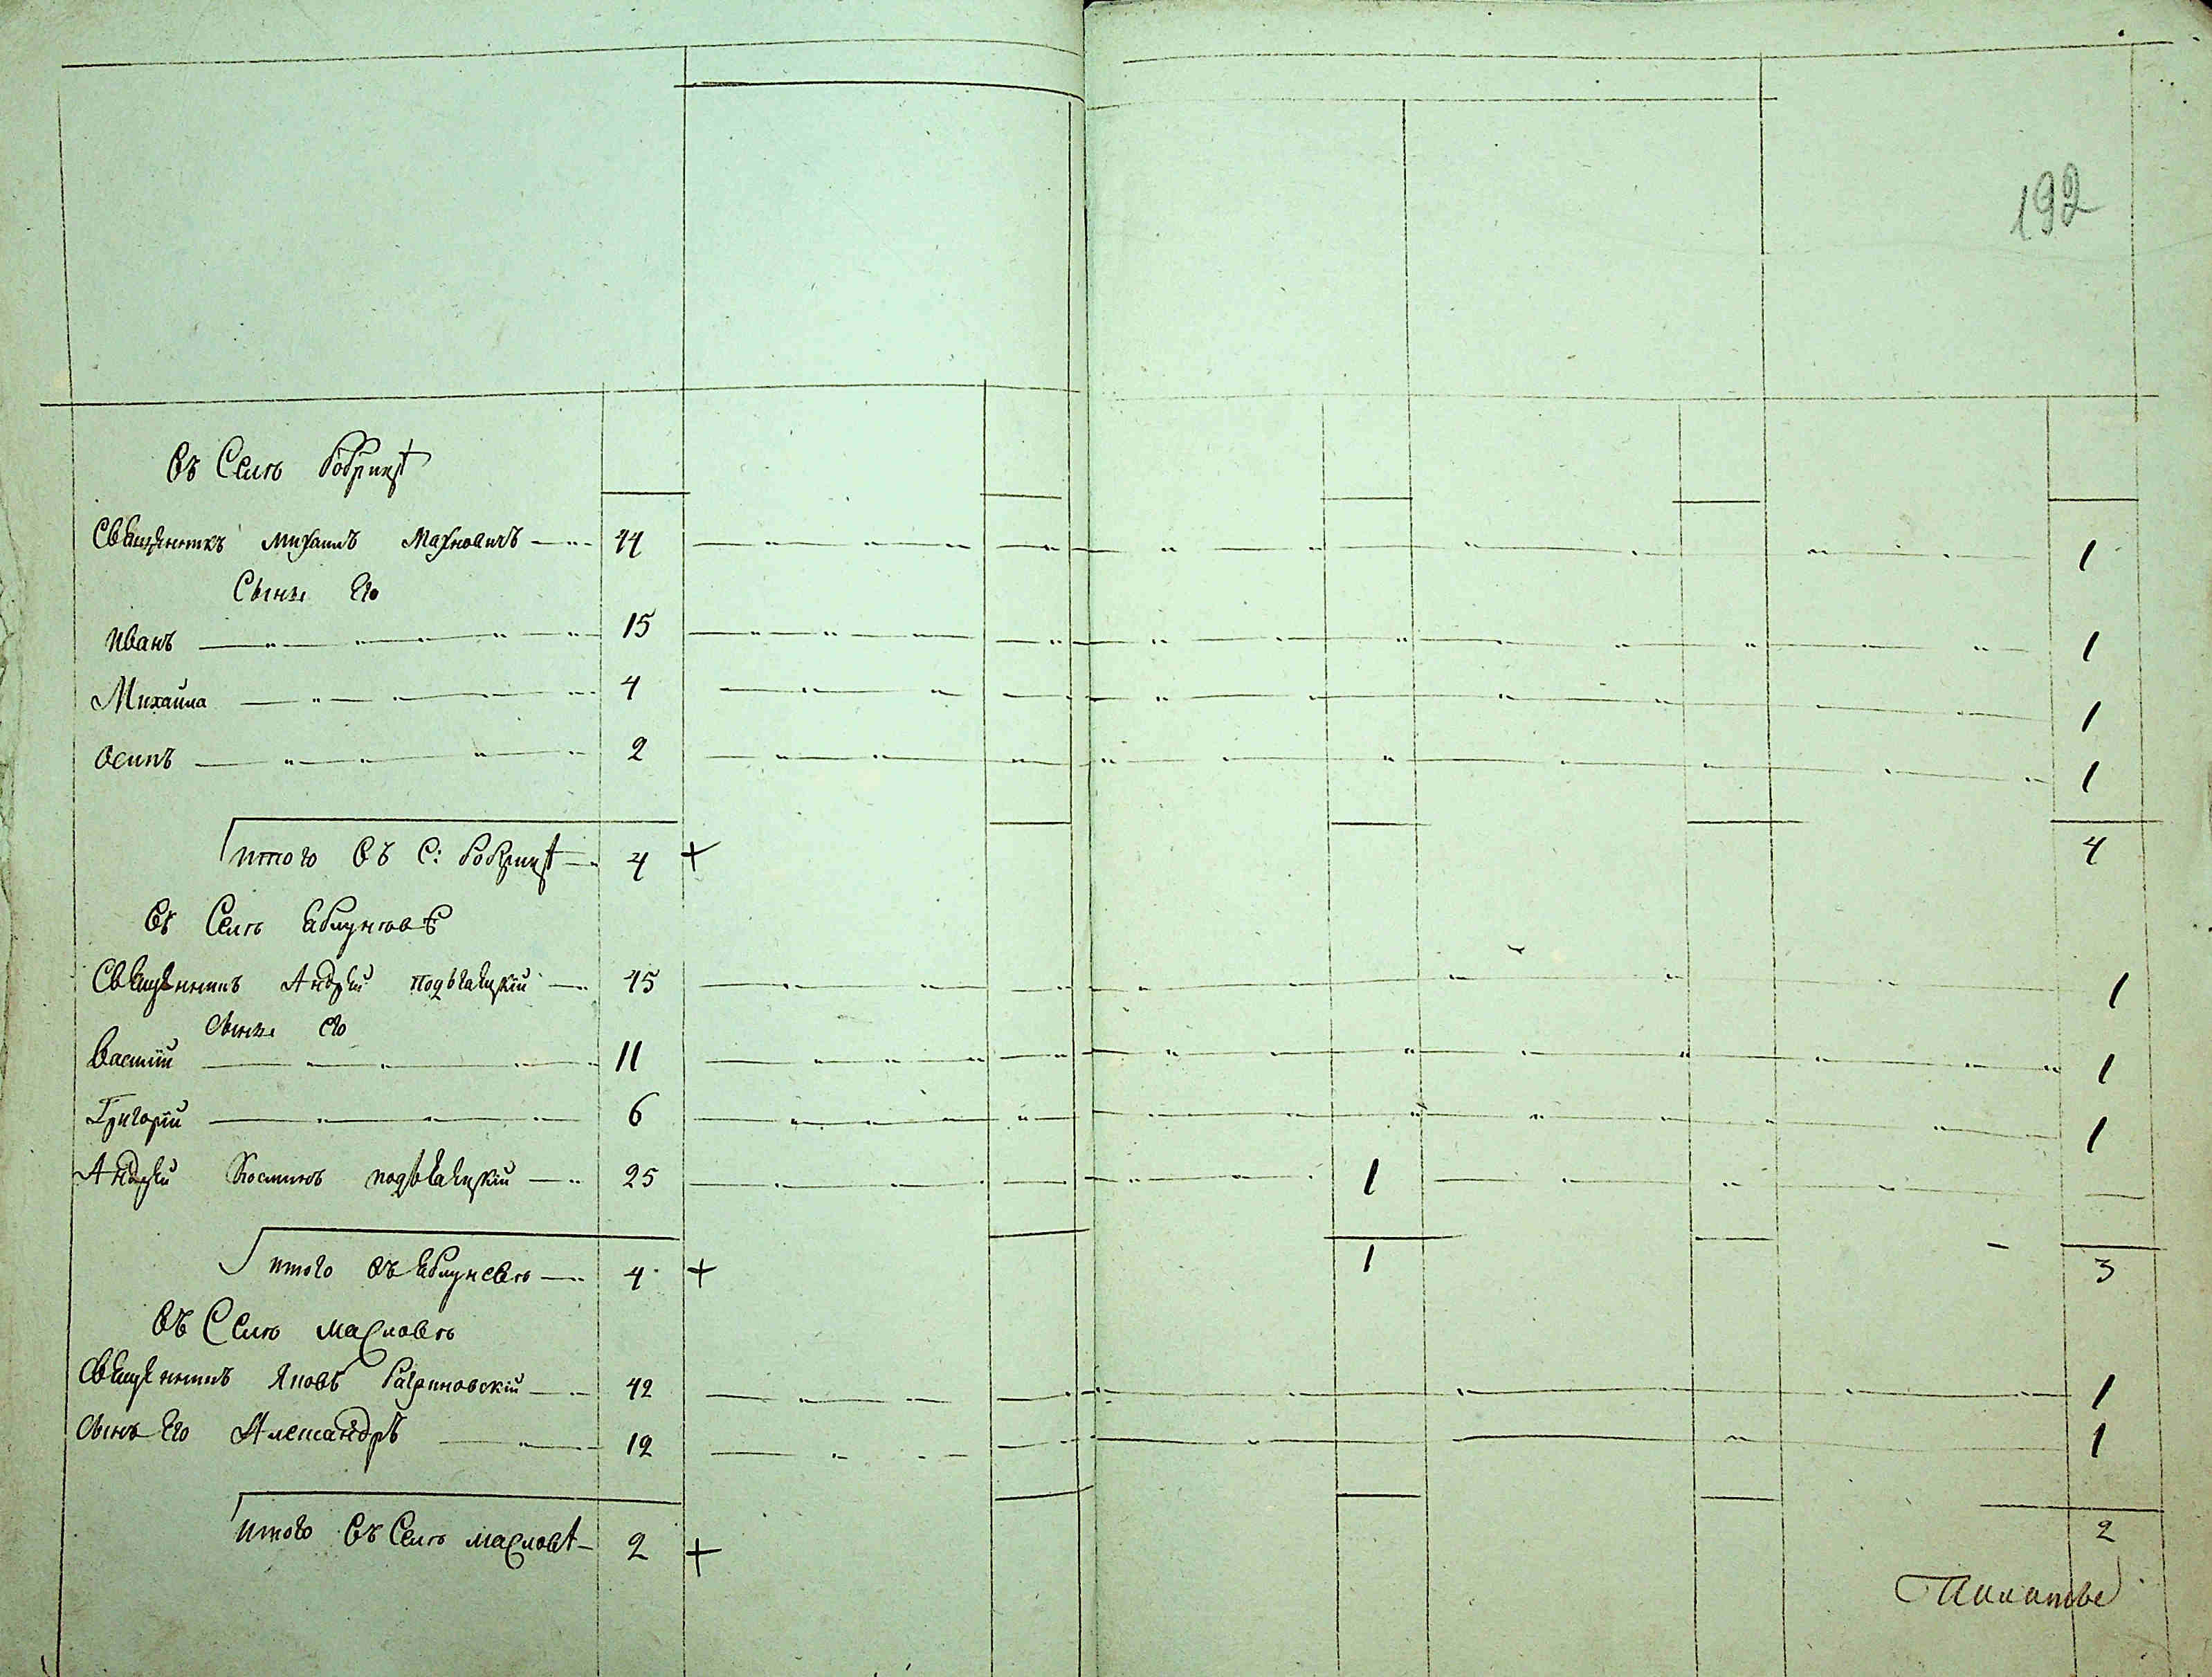 192
въ Селѣ Бобрицѣ
Священникъ михаилъ Махновичъ 44 1
Сыны Его
иванъ 15 1
Михаила 4 1
осипъ 2 1
итого въ С: Бобрицѣ 4 + 4
въ Селѣ Яблуновѣ
Священникъ Андрей 45 1
Сыны его
Василій 11 1
Григорій 6 1
Андрей 25 1
итого въ Яблуновѣ 4 + 1 3
въ Селѣ масловкѣ
Священникъ Яковъ 42 1
Сынъ Его Александръ 12 1
итого въ Селѣ 2 + 2